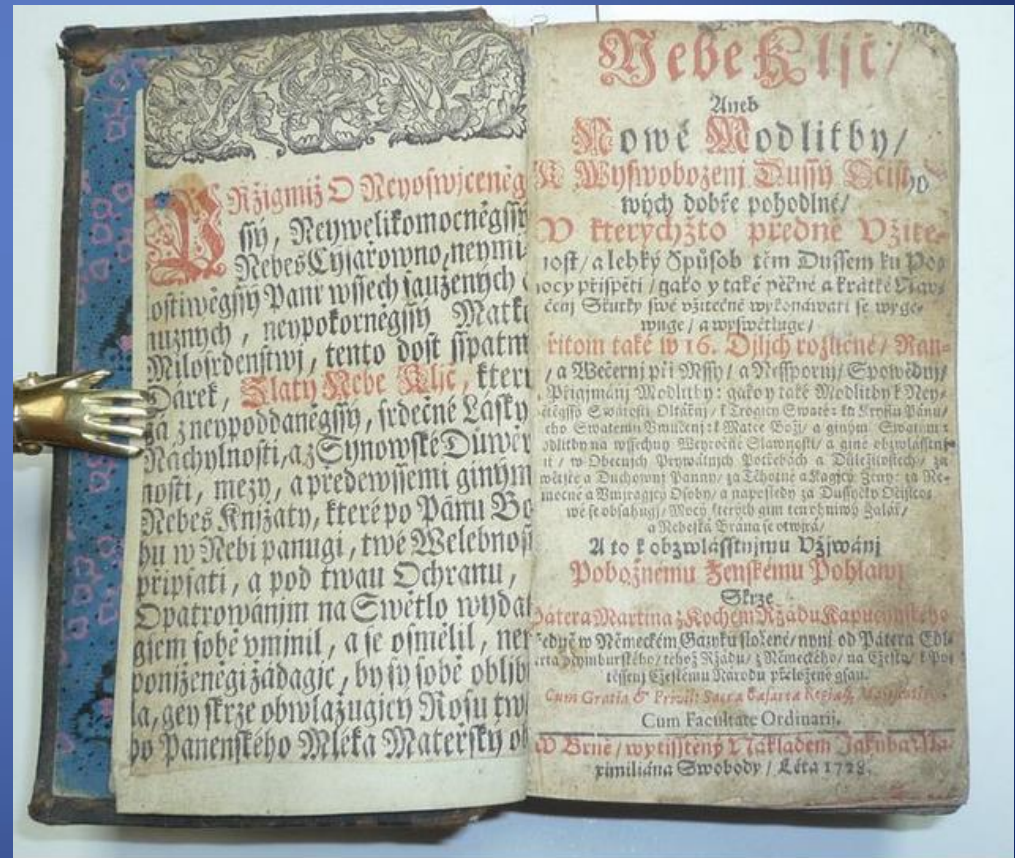 PRžigmiž O Neyoswjceněg
ssý, Neywelikomocněgssý
Nebes Cýsařowno, neymi-
lostiwěgssý Panj wssech saužených
nuzných, neypokorněgssý Matk
Milosrdenstwj, tento dost sspatn
Dárek, Zlatý Nebe Kljč, kter
za neypoddaněgssý, srdečné Lásky
Náchylnosti, a z Synowské Důwěr
nosti, mezy, a předewssemi giným
Nebes Knjžaty, které po Pánu Bo
hu w Nebi panugi, twé Welebnos
připsati, a pod twau Ochranu,
Opatrowánjm na Swětlo wydat
gsem sobě vmjnil, a se osmělil, ney
ponjženěgi žádagjc, by sy sobě obljb
la, gen skrze obwlažugjcý Rosu tw
ho Panenského Mléka Matersky
Nebe Kljč/
Aneb
Nowé Modlitby/
K Wyswobozenj Dussý Očisstco
wých dobře pohodlné/
W kterýchžto předně Vžite-
nost/ a lehký Spůsob těm Dussem ku Po
mocy přispěti/ gako y také pěkné a krátké
čenj Skutky swé vžitečné wykonáwati se wyge-
wuge/ a wyswětluge/
Přitom také w 16. Djljch rozličné/ Ran-
nj/ a Wečernj při Mssy/ a Nessporu/ Spowědnj/
Přigjmánj Modlitby: gako y také Modlitby k Ney-
swětěgssý Swátosti Oltářnj/ k Trogicy Swaté: ku Krystu Pánu/
geho Swatému Vmučenj: k Matce Božj/ a giným Swatým:
Modlitby na wssechny Weyročnj Slawnosti/ a giné obzwlásstnj
w Obecných Prywátnjch Potřebách a Důležitostech/ za
Swětské a Duchownj Panny/ za Těhotné a Ragjcý Ženy: za Ne-
mocné a Vmjragjcý Osoby/ a naposledy za Dussyčky Očisstco
wé se obsahugj/ Mocý kterých gim ten ohniwý Žalář/
a Nebeská Brána se otwjrá/
A to k obzwlásstnjmu Vžjwánj
Pobožnému Ženskému Pohlawj
Skrze
Pátera Martina z Kochem Řžádu Kapucýnského
předně w Německém Gazyku složené/ nynj od Pátera Edl-
berta Nymburského/ téhož Řžádu/ z Německého/ na Cžesko/ k Po-
těssenj Cžeskému Národu přeložené gsau.
Cum Gratia & Privil: Sacrae Caesareae Regiaeq; Majestatis.
Cum Facultate Ordinarij.
W Brně/ wytisstěný Nákladem Jakuba Ma-
ximiliána Swobody/ Léta 1728.